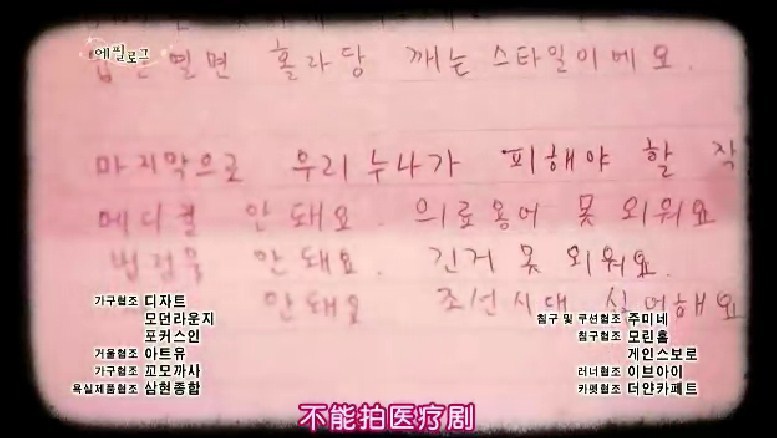 에필로그
홀라당 깨는 스타일이에요.
마지막으로 우리누나가 피해야 할 작
메디컬 안돼요. 의료용어 못 외워요
법정물 안돼요. 긴거 못 외워요.
안돼요 조선시대 싫어해요
가구협조 디자트
모던라운지
포커스인
거울협조 아트유
가구협조 꼬모까사
욕실제품협조 삼현종합
침구 및 쿠션협조 주미네
침구협조 모린홈
게인스보로
러너협조 이브아이
카펫협조 더안카페트
不能拍医疗剧